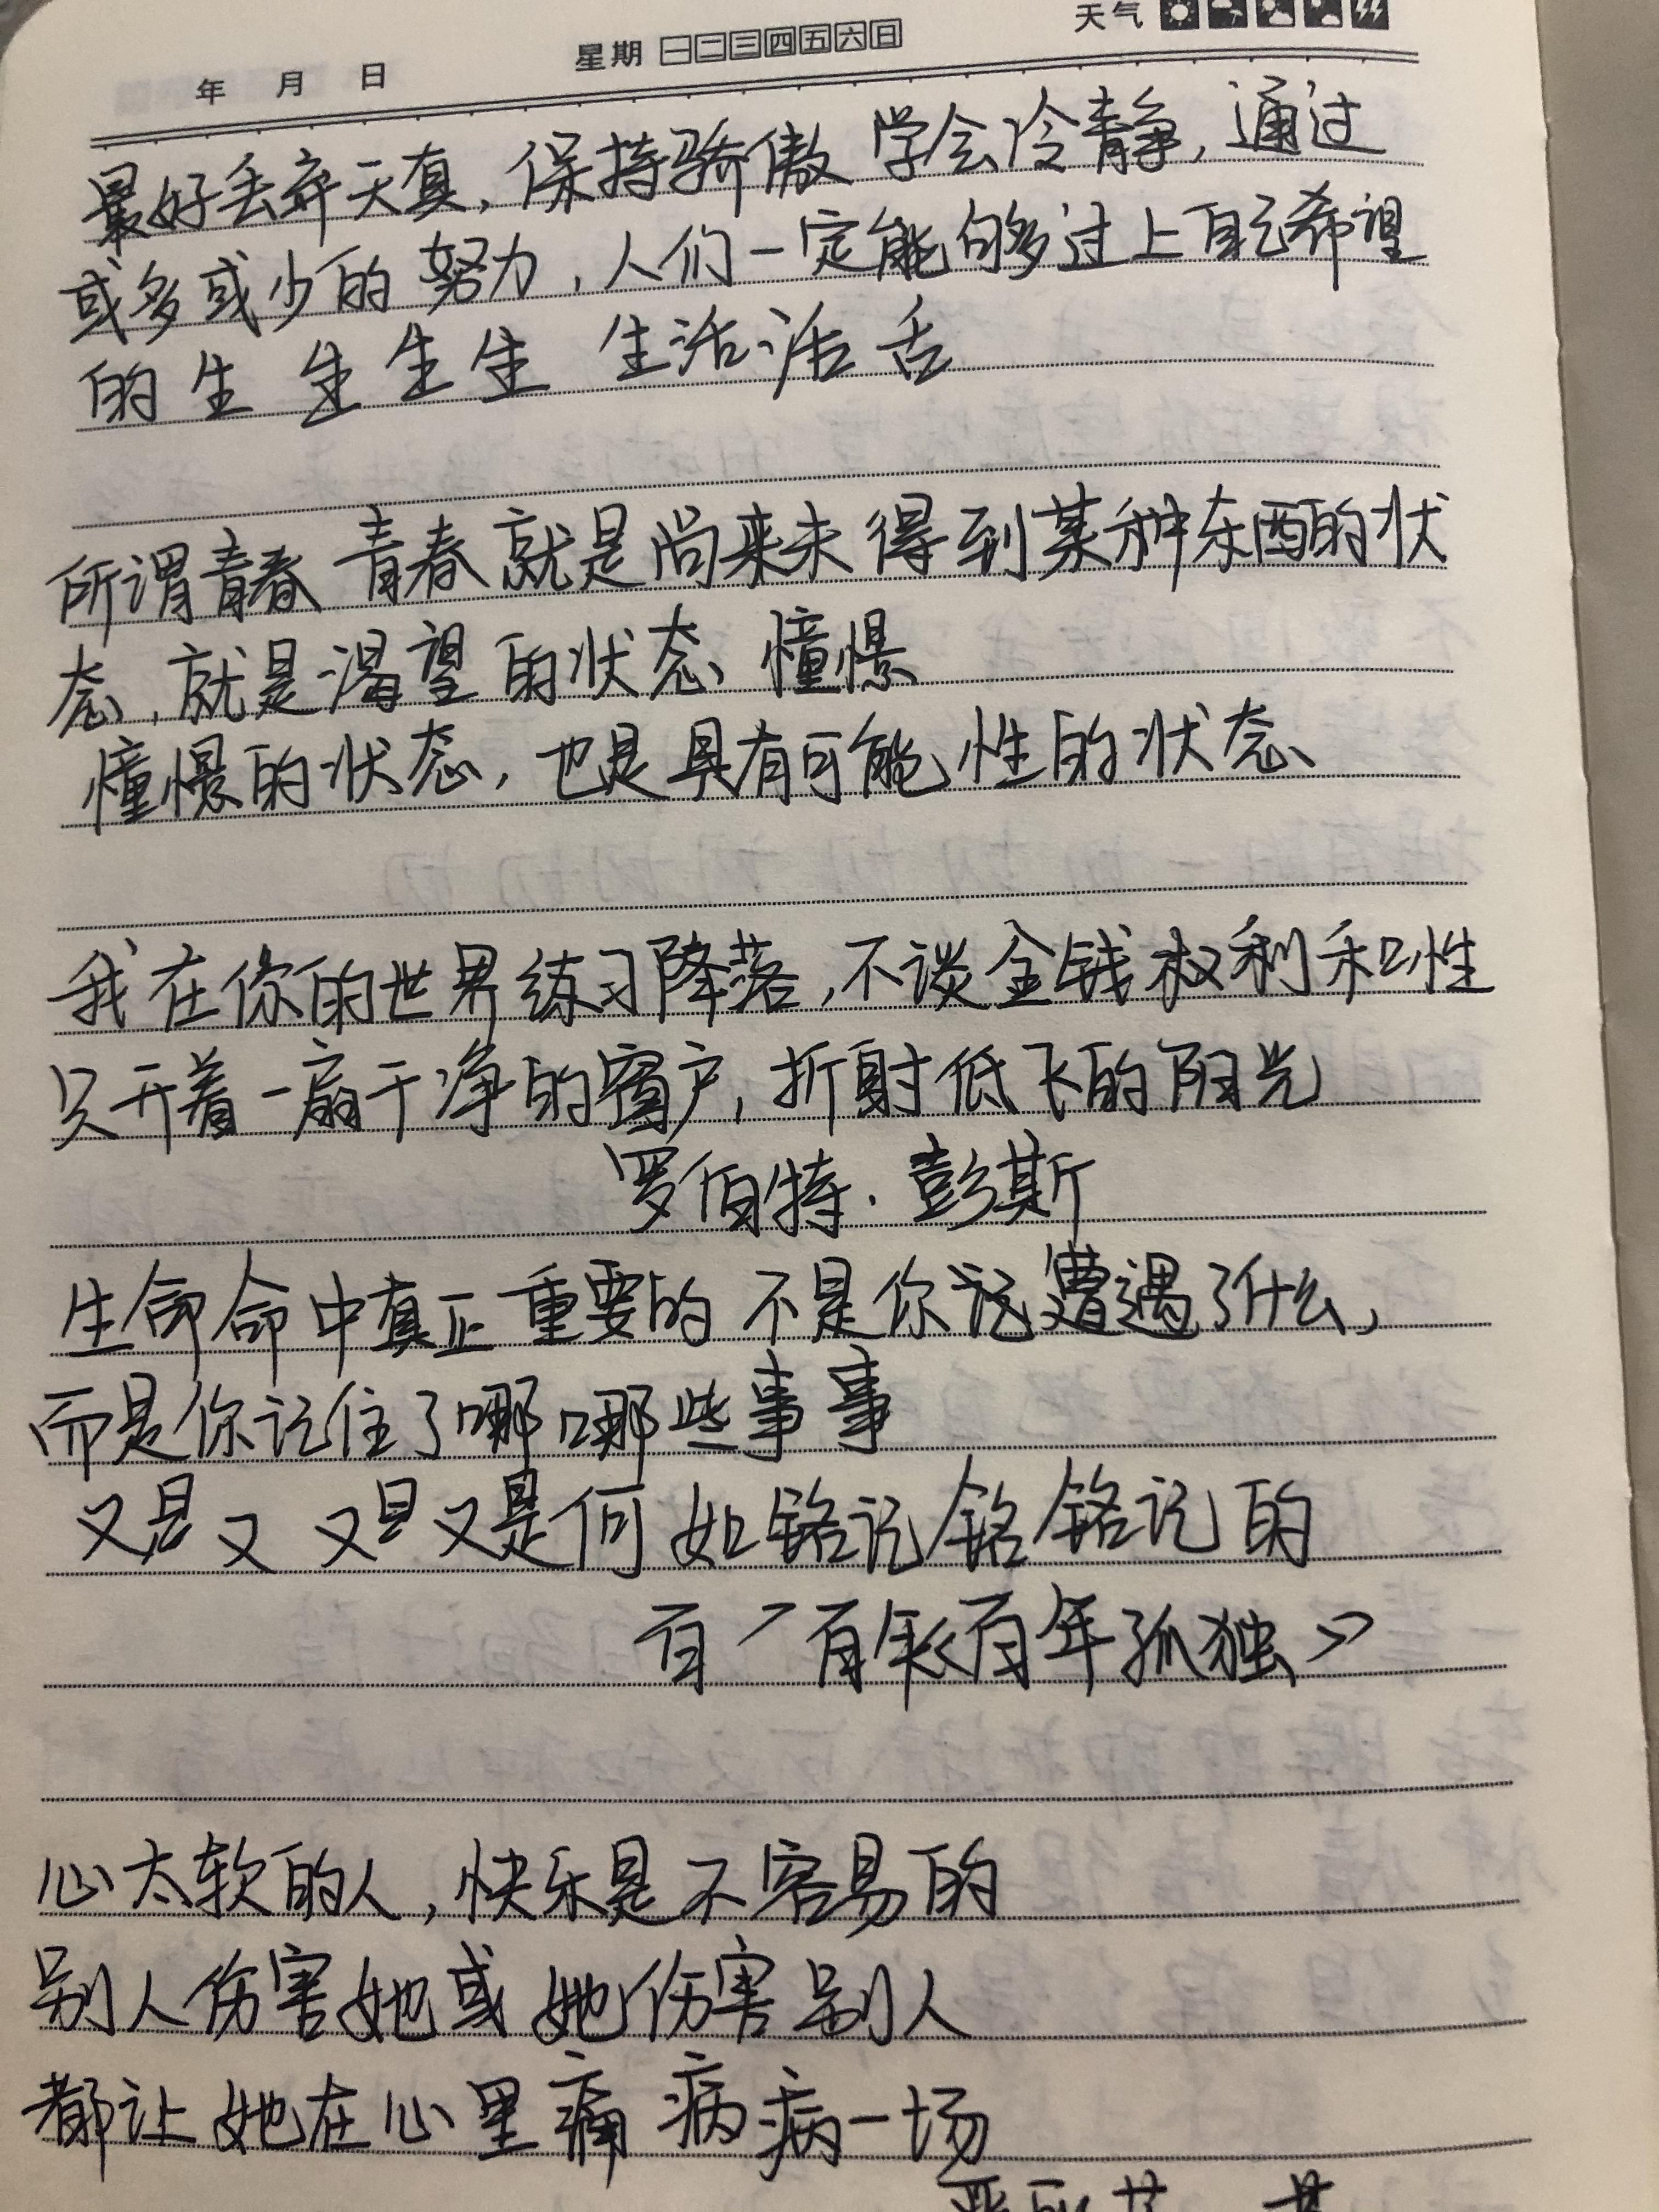 年 月 日 星期 一 二 三 四 五 六 日 天气
最好丢弃天真,保持骄傲 学会冷静,通过
或多或少的努力,人们一定能够过上自己希望
的生 生 生 生 生活活舌
所谓青春 青春就是尚来未得到某种东西的状
态,就是渴望的状态 憧憬
憧憬的状态,也是具有可能性的状态
我在你的世界练习降落,不谈金钱权利和性
只开着一扇干净的窗户,折射低飞的阳光
罗伯特·彭斯
生命命中真正重要的不是你记遭遇了什么,
而是你记住了哪哪些事事
又是又 又是又是何如铭记铭铭记的
百 百年《百年孤独》
心太软的人,快乐是不容易的
别人伤害她或她伤害别人
都让她在心里痛病病一场